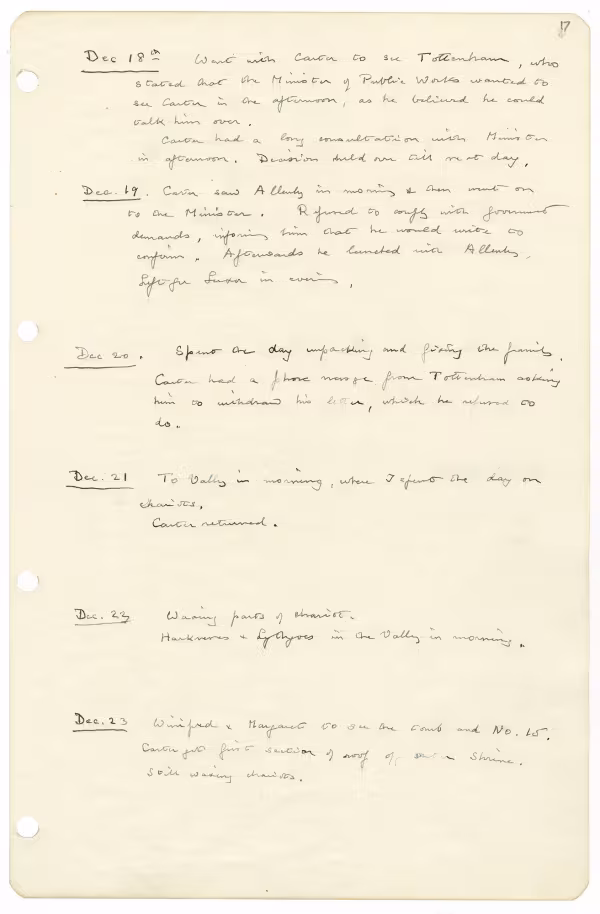 17
Dec 18th Went with Carter to see Tottenham, who
stated that the Minister of Public Works wanted to
see Carter in the afternoon, as he believed he could
talk him over.
Carter had a long consultation with Minister
in afternoon. Decision held over till next day.
Dec. 19. Carter saw Allenby in morning & then went on
to the Minister. Refused to comply with government
demands, informing him that he would write to
confirm. Afterwards he lunched with Allenby.
Left for Luxor in evening.
Dec 20. Spent the day unpacking and fixing the family.
Carter had a phone message from Tottenham asking
him to withdraw his letter, which he refused to
do.
Dec. 21 To Valley in morning, where I spent the day on
chariots.
Carter returned.
Dec. 22 Waxing parts of chariot.
Harknesses & Lythgoes in the Valley in morning.
Dec. 23 Winifred & Margaret to see the tomb and No. 15.
Carter got first section of roof of outer Shrine.
Still waxing chariots.